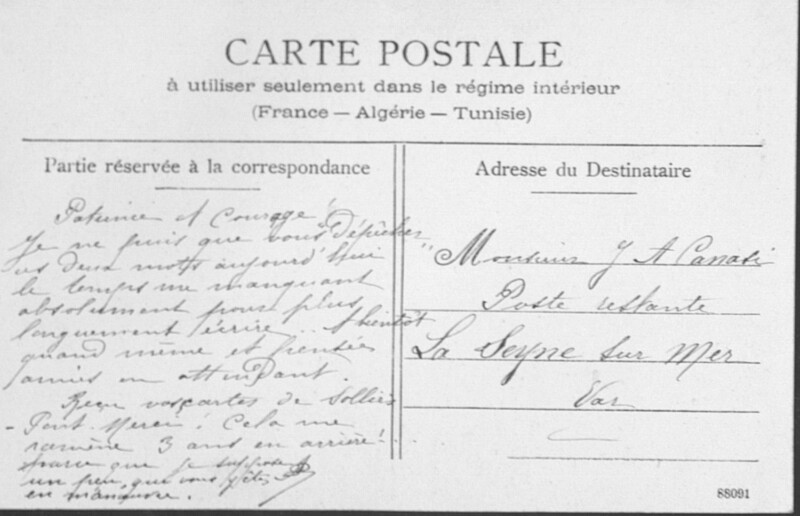 CARTE POSTALE
à utiliser seulement dans le régime intérieur
(France — Algérie — Tunisie)
Partie réservée à la correspondance
Patience et Courage!
Je ne puis que vous dépêcher
ces deux mots aujourd'hui
le temps me manquant
absolument pour plus
longuement écrire .. A bientôt
quand même et pensées
amies en attendant.
Reçu vos cartes de Solliès
- Pont. Merci! Cela me
ramène 3 ans en arrière!...
parce que je suppose
un peu que vous êtes
en manœuvre.
Adresse du Destinataire
Monsieur J A Canasi
Poste restante
La Seyne sur Mer
Var
88091